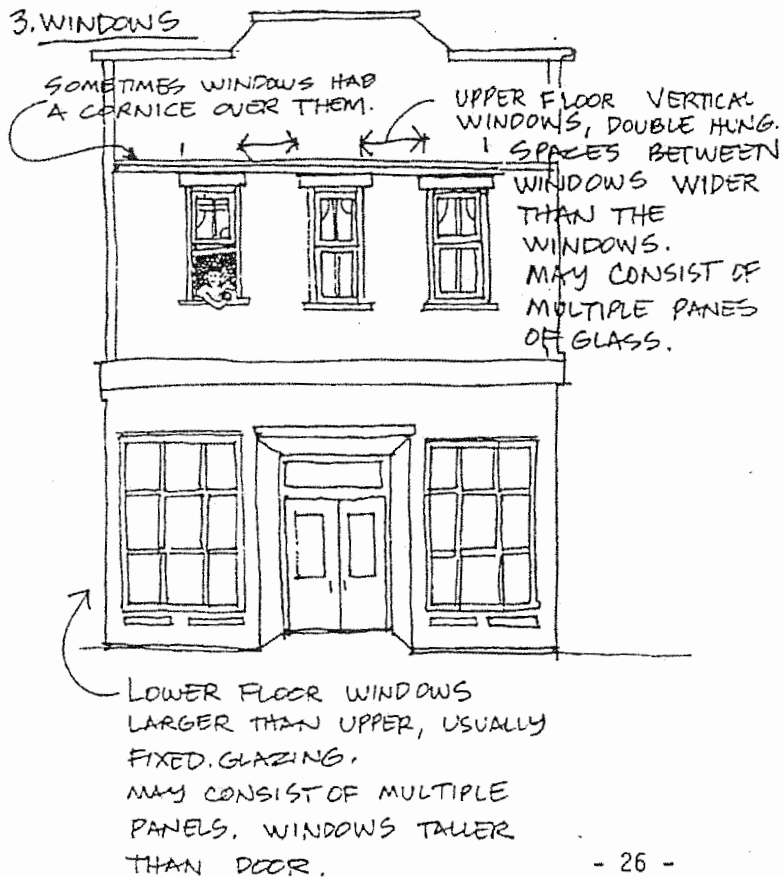 3. WINDOWS
SOMETIMES WINDOWS HAD
A CORNICE OVER THEM.
UPPER FLOOR VERTICAL
WINDOWS, DOUBLE HUNG.
SPACES BETWEEN
WINDOWS WIDER
THAN THE
WINDOWS.
MAY CONSIST OF
MULTIPLE PANES
OF GLASS.
LOWER FLOOR WINDOWS
LARGER THAN UPPER, USUALLY
FIXED. GLAZING.
MAY CONSIST OF MULTIPLE
PANELS. WINDOWS TALLER
THAN DOOR.
- 26 -